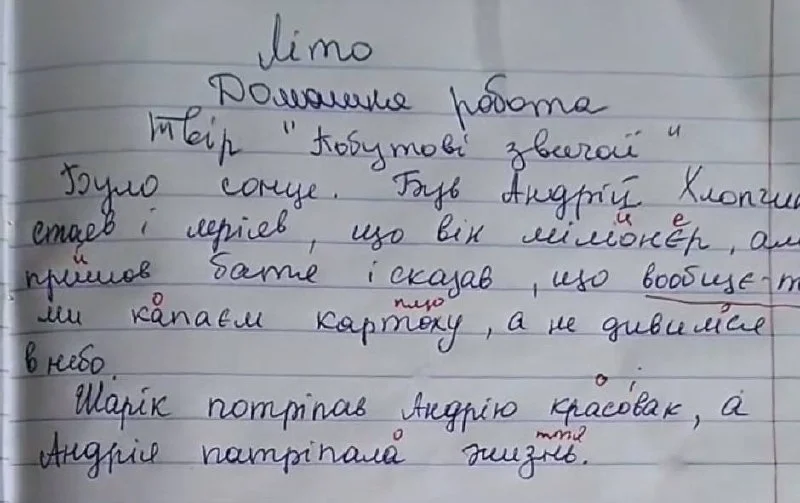 Літо
Домашня робота
Твір "Побутові звичаї"
Було сонце. Був Андрій. Хлопчик
стаев і мріяв, що він мілйонєр, але
прийшов батя і сказав, що вообщє-т
ми капаєм картоху, а не дивимся
в небо.
Шарік потріпав Андрію красовак, а
Андрія патріпала жизнь.